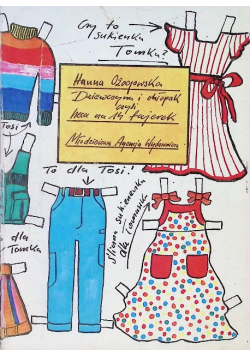 Czy to
sukienka
Tomka?
Hanna Ożogowska
Dziewczyna i chłopak
czyli
heca na 14 fajerek
Młodzieżowa Agencja Wydawnicza
Tosi!
To dla Tosi!
dla
Tomka
sukieneczka
dla Tomcia